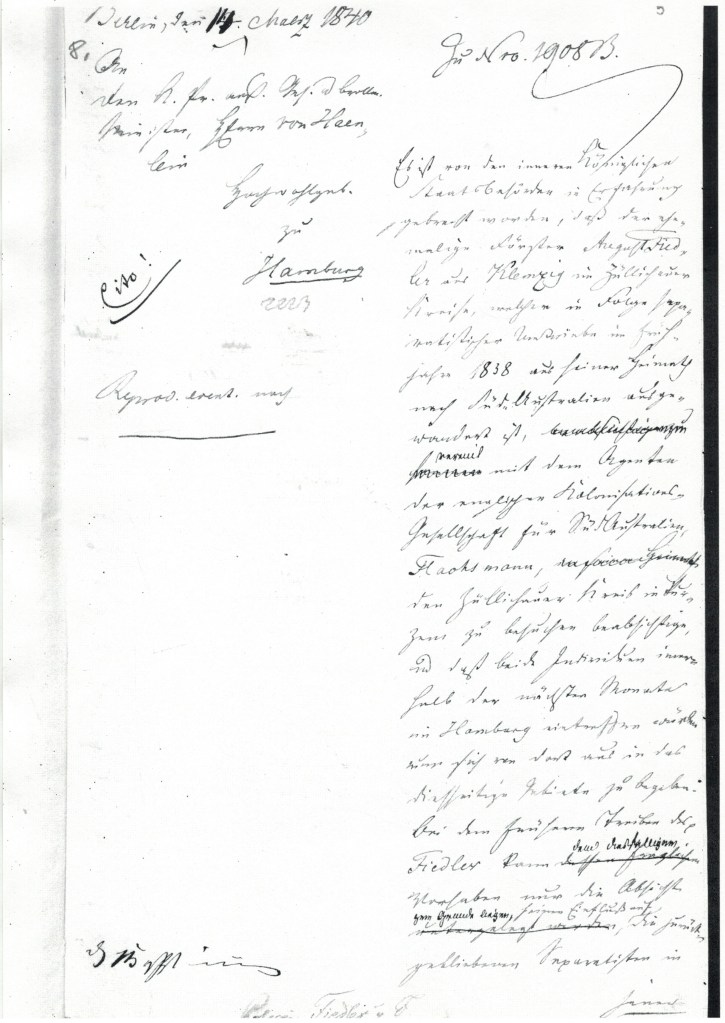 Berlin, den 14. Maerz 1840
8.
An
den K. Pr. auß.
Minister, Herrn von Haen
lein
Hochwohlgeb.
zu
Hamburg
2223
Cito!
Reprod. event. nach
Zu Nro. 1908 B.
Es ist von den inneren Königlichen
Staatsbehörden in Erfahrung
gebracht worden, daß der ehe-
malige Förster August Fied-
ler aus Klemzig im Züllichauer
Kreise, welcher in Folge sepa-
ratistischer Umtriebe im Früh-
jahre 1838 aus seiner Heimath
nach Süd-Australien ausge-
wandert ist,
mit dem Agenten
der englischen Kolonisations-
Gesellschaft für Süd Australien,
Flachsmann,
den Züllichauer Kreis in Kur-
zem zu besuchen beabsichtige,
und daß beide Individuen inner-
halb der nächsten Monate
in Hamburg eintreffen würden
um sich von dort aus in das
diesseitige Gebiete zu begeben.
Bei dem früheren Treiben des
Fiedler kann dem
Vorhaben nur die Absicht
zum Grunde liegen, seinen Einfluß auf
die zurück-
gebliebenen Separatisten in
jener